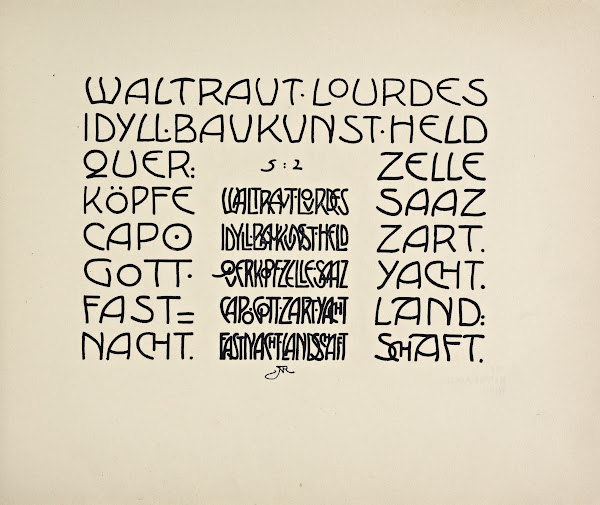 WALTRAUT·LOURDES
IDYLL·BAUKUNST·HELD
QUER:
KÖPFE
CAPO
GOTT·
FAST=
NACHT.
5:2
WALTRAUT·LOURDES
IDYLL·BAUKUNST·HELD
QUERKÖPFZELLESAAZ
CAPO·GOTT·ZART·YACHT
FASTNACHT·LANDSCHAFT
ZELLE
SAAZ
ZART.
YACHT.
LAND:
SCHAFT.